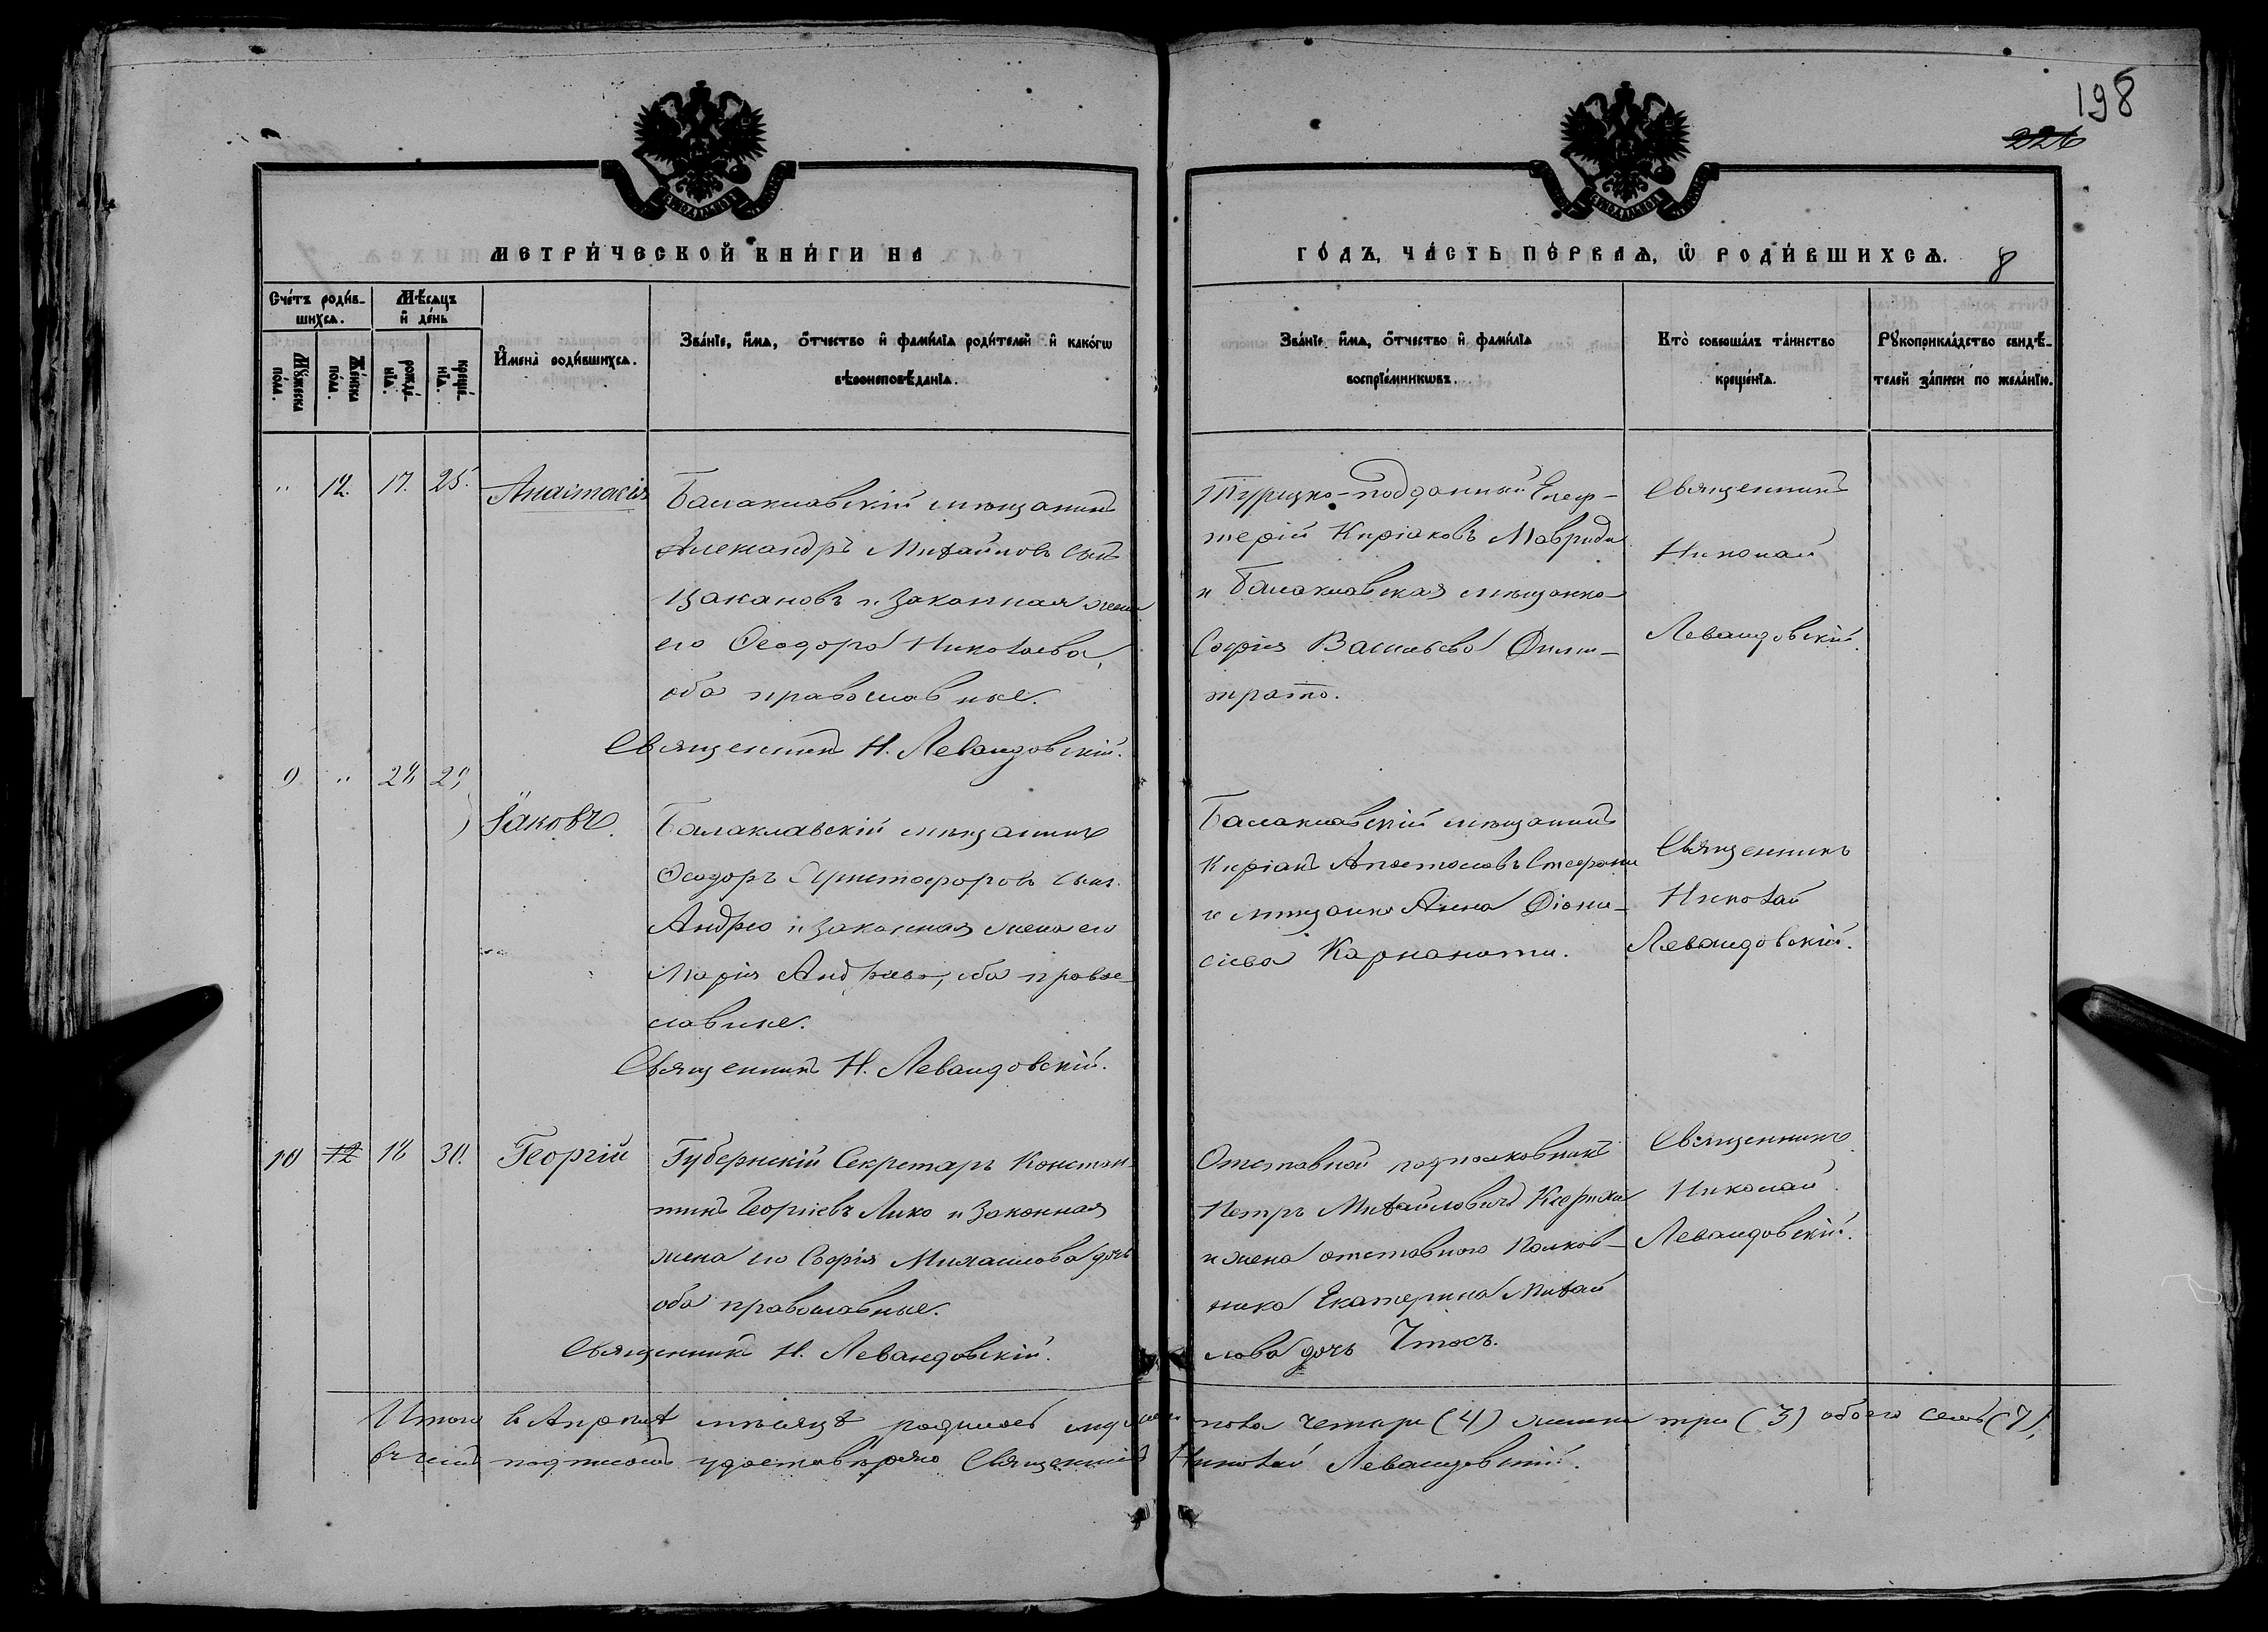 198
226
МЕТРИ́ЧЕСКОЙ КНИ́ГИ НА
ГО́ДЪ, ЧА́СТЬ ПЕ́РВАѦ, Ѡ РОДИ́ВШИХСѦ.
8
Сче́тъ роди́в-
шихсѧ.
Мѣ́сѧцъ
и҆ де́нь
Мꙋ́жеска
по́ла.
Же́нска
по́ла.
рожде́-
нїѧ.
креще́-
нїѧ.
И҆мена̀ роди́вшихсѧ.
Зва́нїе, и҆́мѧ, ѻ҆́тчество и҆ фами́лїѧ роди́телей и҆ како́гѡ
вѣроисповѣ́данїѧ.
Зва́нїе, и҆́мѧ, ѻ҆́тчество и҆ фами́лїѧ
воспрїе́мникѡвъ.
Кто̀ соверша́лъ та́инство
креще́нїѧ.
Рꙋкоприкла́дство свидѣ́-
телей за́писи по жела́нїю.
" 12. 17. 25. Анастасія
Балаклавскій мѣщанинъ
Александръ Михайловъ сынъ
Цакановъ и законная жена
его Ѳеодора Николаева,
оба православные.
Священникъ Н. Левандовскій.
Турецко-подданный Елеф-
терій Киріаковъ Мавриди
и Балаклавская мѣщанка
Софія Васильева Дими-
трато.
Священникъ
Николай
Левандовскій.
9 " 28 29
Іаковъ.
Балаклавскій мѣщанинъ
Ѳеодоръ Христофоровъ сынъ
Андрео и законная жена его
Марія Андреева, оба право-
славные.
Священникъ Н. Левандовскій.
Балаклавскій мѣщанинъ
Киріакъ Апостоловъ Стефани
и мѣщанка Анна Діони-
сіева
Священникъ
Николай
Левандовскій.
10 12 18 30. Георгій
Губернскій Секретарь Констан-
тинъ Георгіевъ Лико и законная
жена его Софія Михаилова дочь
оба православные.
Священникъ Н. Левандовскій.
Отставной подполковникъ
Петръ Михайловичъ
и жена отставного Полков-
ника Екатерина Михай
лова дочь
Священникъ
Николай
Левандовскій.
Итого въ Апрѣлѣ мѣсяцѣ родилось муж. пола четыре (4) женска три (3) обоего семь (7),
въ чемъ подписомъ удостовѣряю Священникъ Николай Левандовскій.